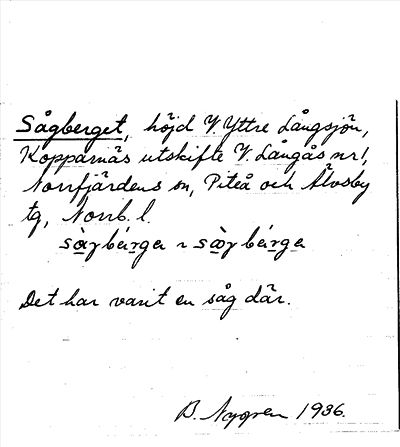 Sågberget, höjd V. Yttre Långsjön,
Kopparnäs utskifte V. Långås nr 1,
Norrfjärdens sn, Piteå och Älvsby
tg, Norrb. l.
sàgbérga ~ sàgbérga
Det har varit en såg där.
B. Nygren 1936.